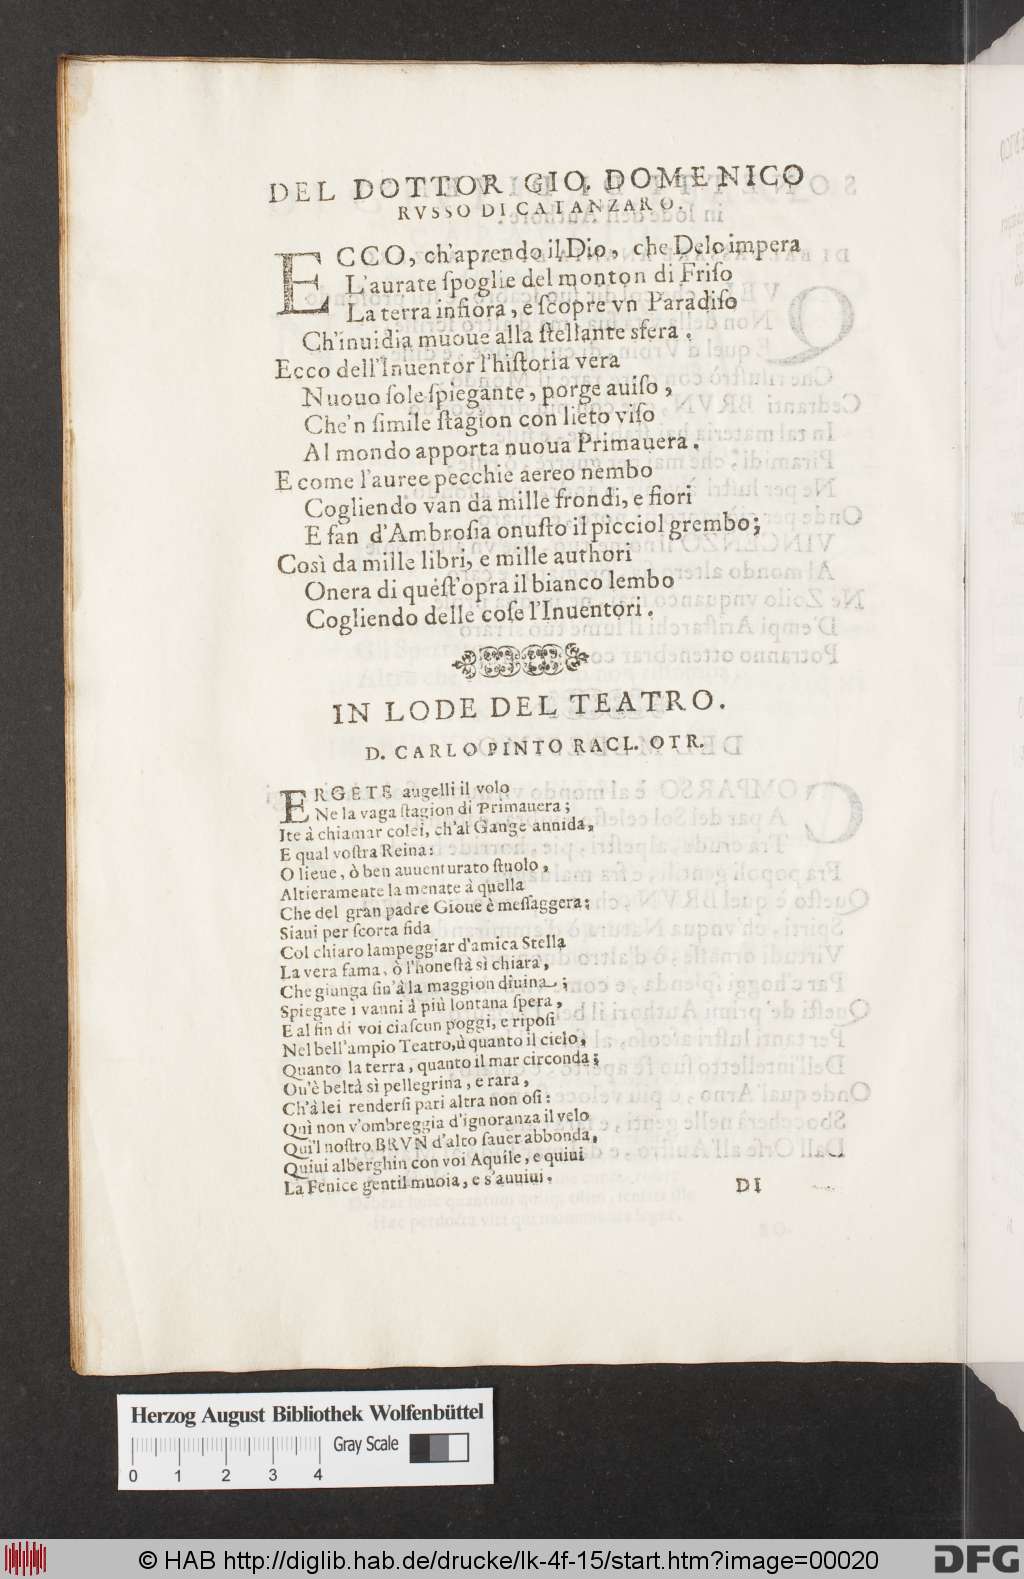 DEL DOTTOR GIO. DOMENICO
RVSSO DI CATANZARO.
ECCO, ch'aprendo il Dio, che Delo impera
L'aurate ſpoglie del monton di Friſo
La terra infiora, e ſcopre vn Paradiſo
Ch'inuidia muoue alla ſtellante sfera.
Ecco dell'Inuentor l'hiſtoria vera
Nuouo ſole ſpiegante, porge auiſo,
Che'n ſimile ſtagion con lieto viſo
Al mondo apporta nuoua Primauera.
E come l'auree pecchie aereo nembo
Cogliendo van da mille frondi, e fiori
E fan d'Ambroſia onuſto il picciol grembo;
Così da mille libri, e mille authori
Onera di queſt'opra il bianco lembo
Cogliendo delle coſe l'Inuentori.
IN LODE DEL TEATRO.
D. CARLO PINTO RACL. OTR.
ERGETE augelli il volo
Ne la vaga ſtagion di Primauera;
Ite à chiamar colei, ch'al Gange annida,
E qual voſtra Reina:
O lieue, ò ben auuenturato ſtuolo,
Altieramente la menate à quella
Che del gran padre Gioue è meſſaggera;
Siaui per ſcorta fida
Col chiaro lampeggiar d'amica Stella
La vera fama, ò l'honeſtà sì chiara,
Che giunga ſin'à la maggion diuina;
Spiegate i vanni à più lontana ſpera,
E al fin di voi ciaſcun poggi, e ripoſi
Nel bell'ampio Teatro, ù quanto il cielo,
Quanto la terra, quanto il mar circonda;
Ou'è beltà sì pellegrina, e rara,
Ch'à lei renderſi pari altra non oſi:
Quì non v'ombreggia d'ignoranza il velo
Qui'l noſtro BRVN d'alto ſauer abbonda,
Quiui alberghin con voi Aquile, e quiui
La Fenice gentil muoia, e s'auuiui.
DI
Herzog August Bibliothek Wolfenbüttel
Gray Scale
0 1 2 3 4
© HAB http://diglib.hab.de/drucke/lk-4f-15/start.htm?image=00020
DFG